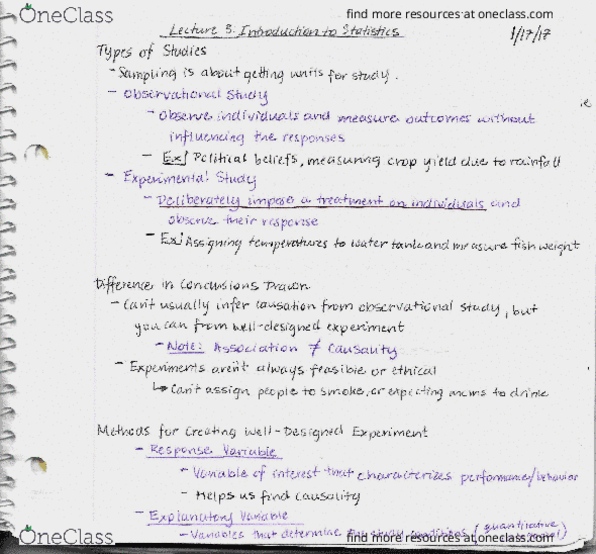 OneClass
find more resources at oneclass.com
Lecture 3: Introduction to Statistics 1/17/17
Types of Studies
- Sampling is about getting units for study.
- Observational Study
- Observe individuals and measure outcomes without
influencing the responses
- Ex/ Political beliefs, measuring crop yield due to rainfall
- Experimental Study
- Deliberately impose a treatment on individuals and
observe their response
- Ex/ Assigning temperatures to water tank and measure fish weight
Difference in Conclusions Drawn
- Can't usually infer causation from observational study, but
you can from well-designed experiment
- Note: Association ≠ Causality
- Experiments aren't always feasible or ethical
↳ Can't assign people to smoke, or expecting moms to drink
Methods for Creating Well-Designed Experiment
- Response Variable
- Variable of interest that characterizes performance/behavior
- Helps us find causality
- Explanatory Variable
- Variables that determine (quantitative
OneClass
find more resources at oneclass.com